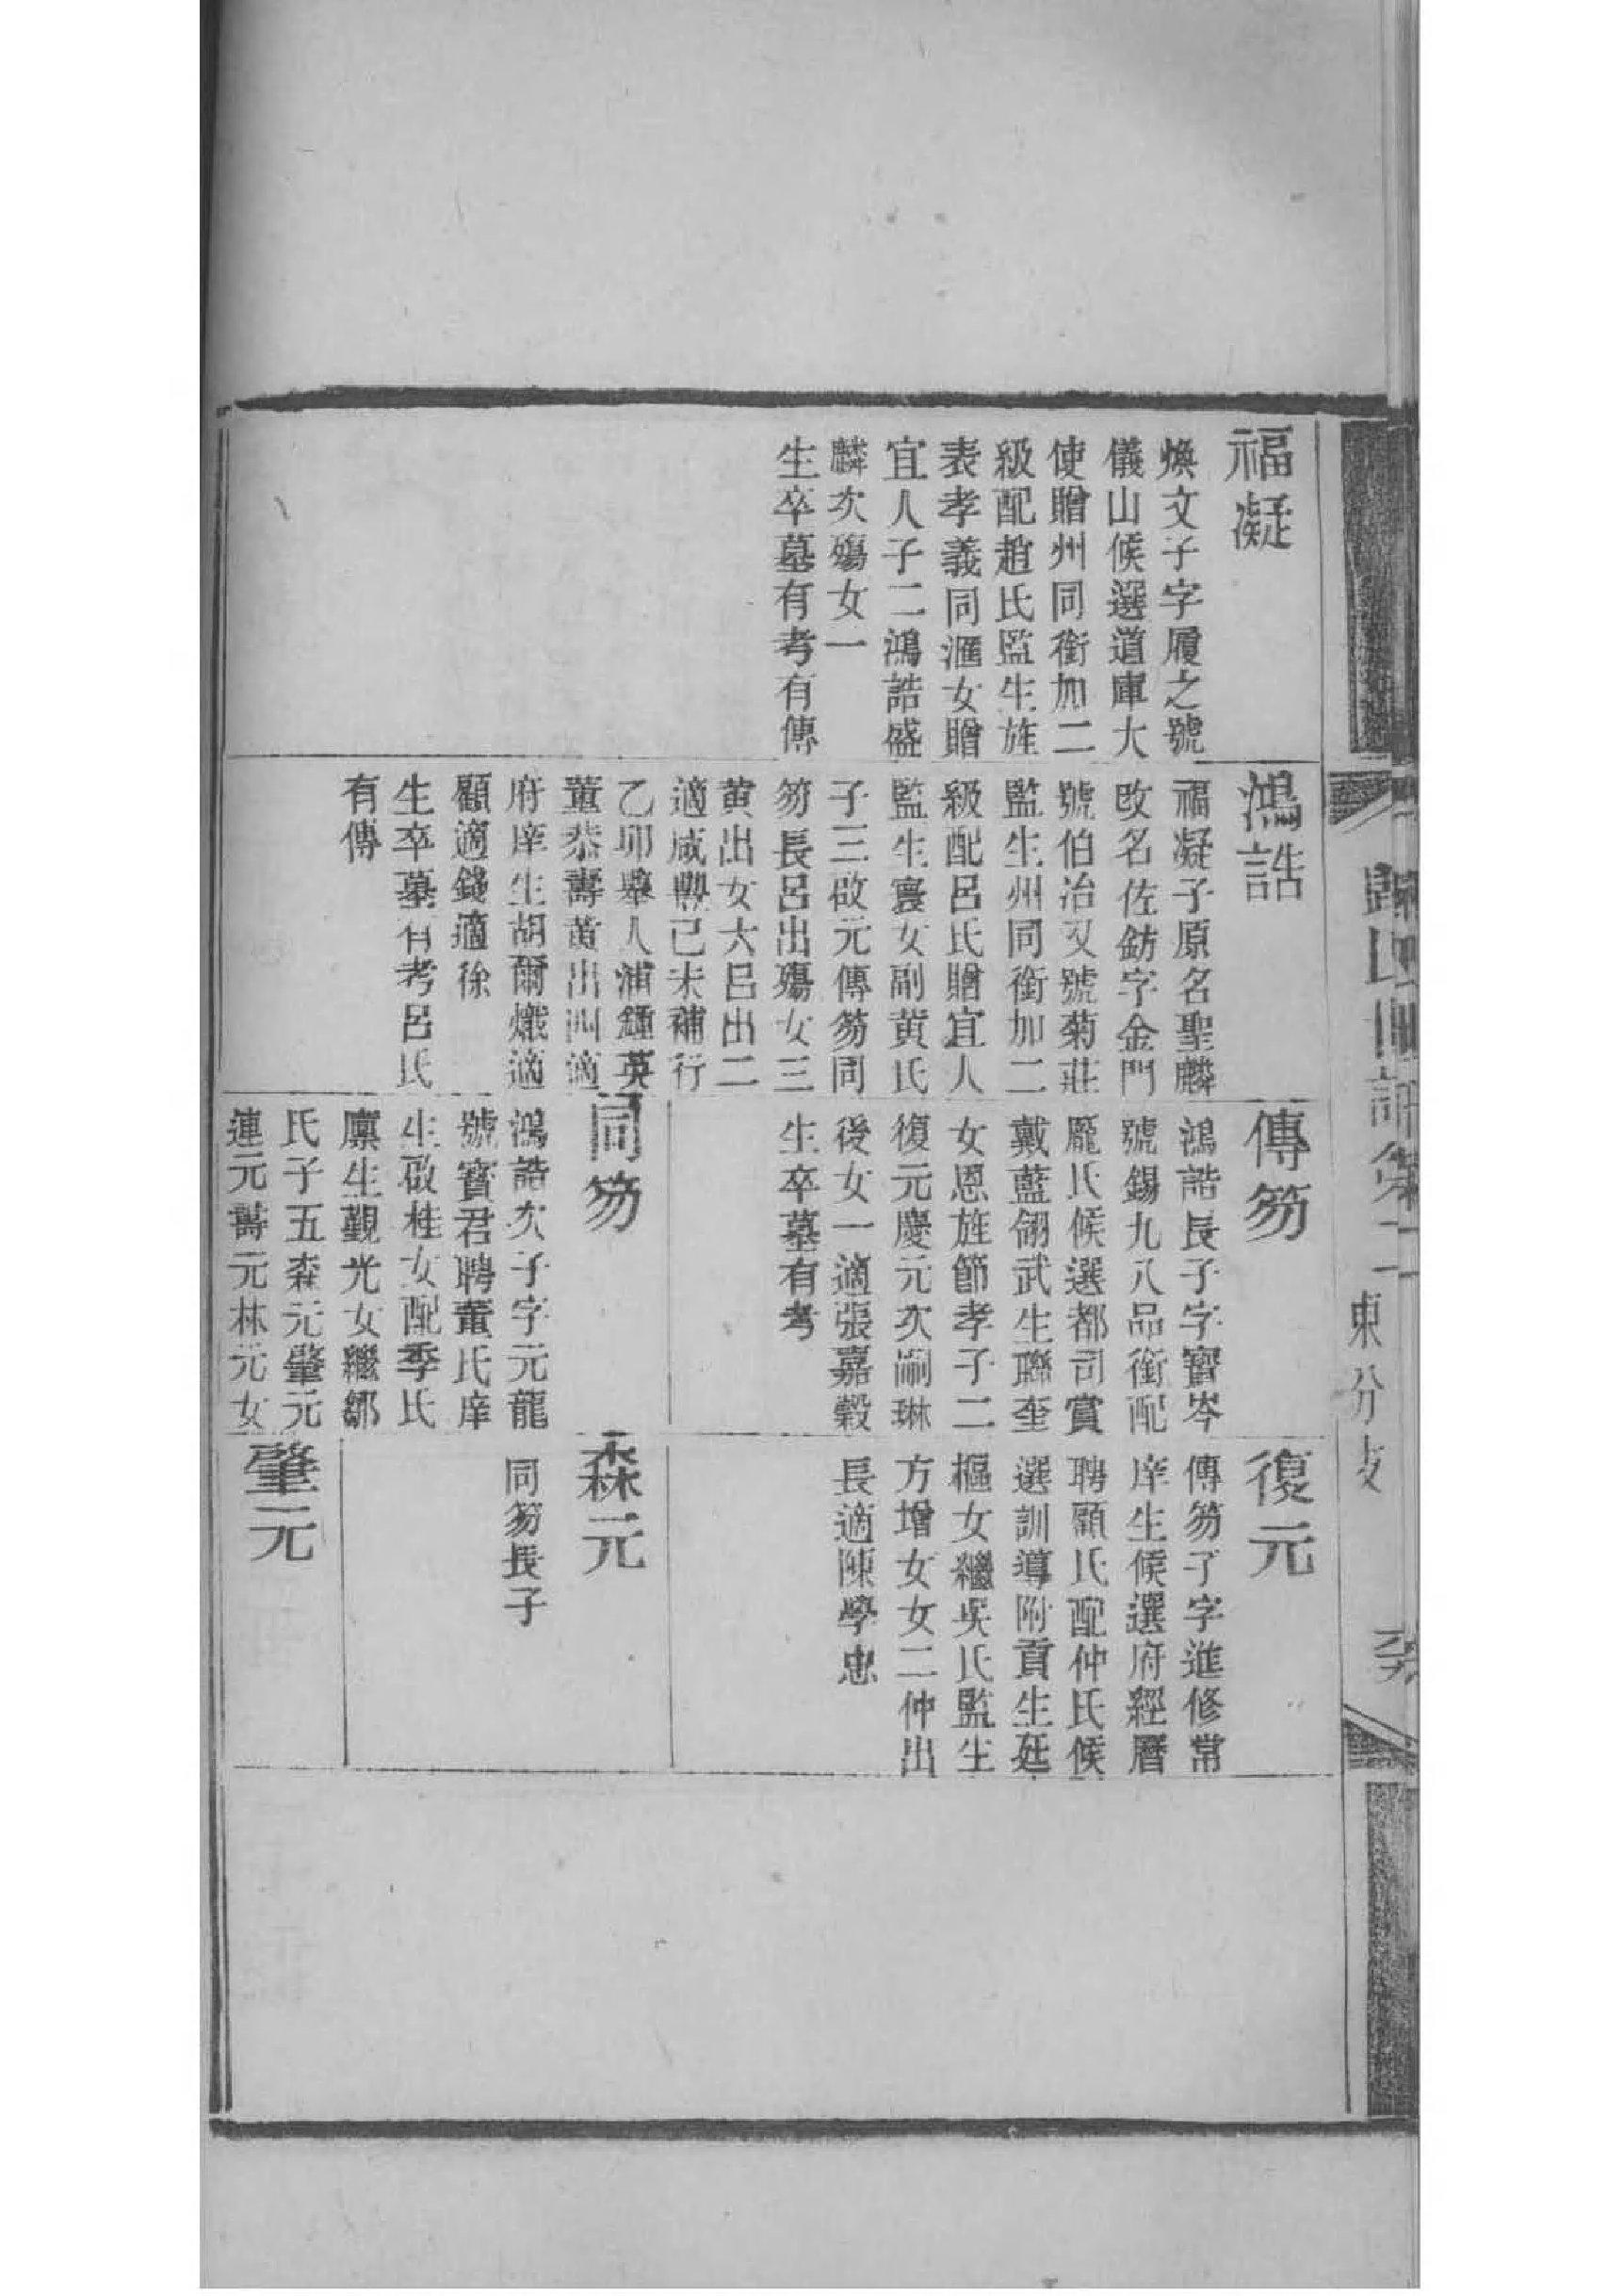 福凝
煥文子字履之號
儀山候選道庫大
使贈州同銜加二
級配趙氏監生旌
表孝義同滙女贈
宜人子二鴻誥盛
麟次殤女一
生卒墓有考有傳
鴻誥
福凝子原名聖麟
改名佐鈁字金門
號伯治又號菊莊
監生州同銜加二
級配呂氏贈宜人
監生寰女副黄氏
子三啟元傳笏同
笏長呂出殤女三
黄出女大呂出二
適咸豐己未補行
乙卯舉人浦鍾英
董恭壽黄出四適
府庠生胡爾熾適
顧適錢適徐
生卒墓有考呂氏
有傳
傳笏
鴻誥長子字寶岑
號錫九八品銜配
龎氏候選都司賞
戴藍翎武生聯奎
女恩旌節孝子二
復元慶元次嗣琳
後女一適張嘉穀
生卒墓有考
同笏
鴻誥次子字元龍
號寶君聘董氏庠
生啟桂女配季氏
廩生觀光女繼鄒
氏子五森元肇元
連元壽元林元女
復元
傳笏子字進修常
庠生候選府經厯
聘顧氏配仲氏候
選訓導附貢生廷
樞女繼吳氏監生
方增女女二仲出
長適陳學忠
森元
同笏長子
肇元
歸氏世譜卷二
東分支